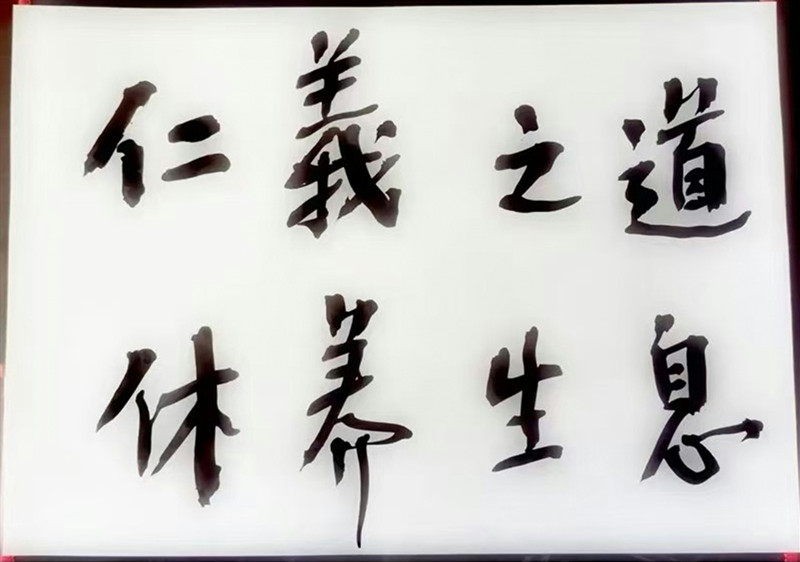 仁義之道
休养生息